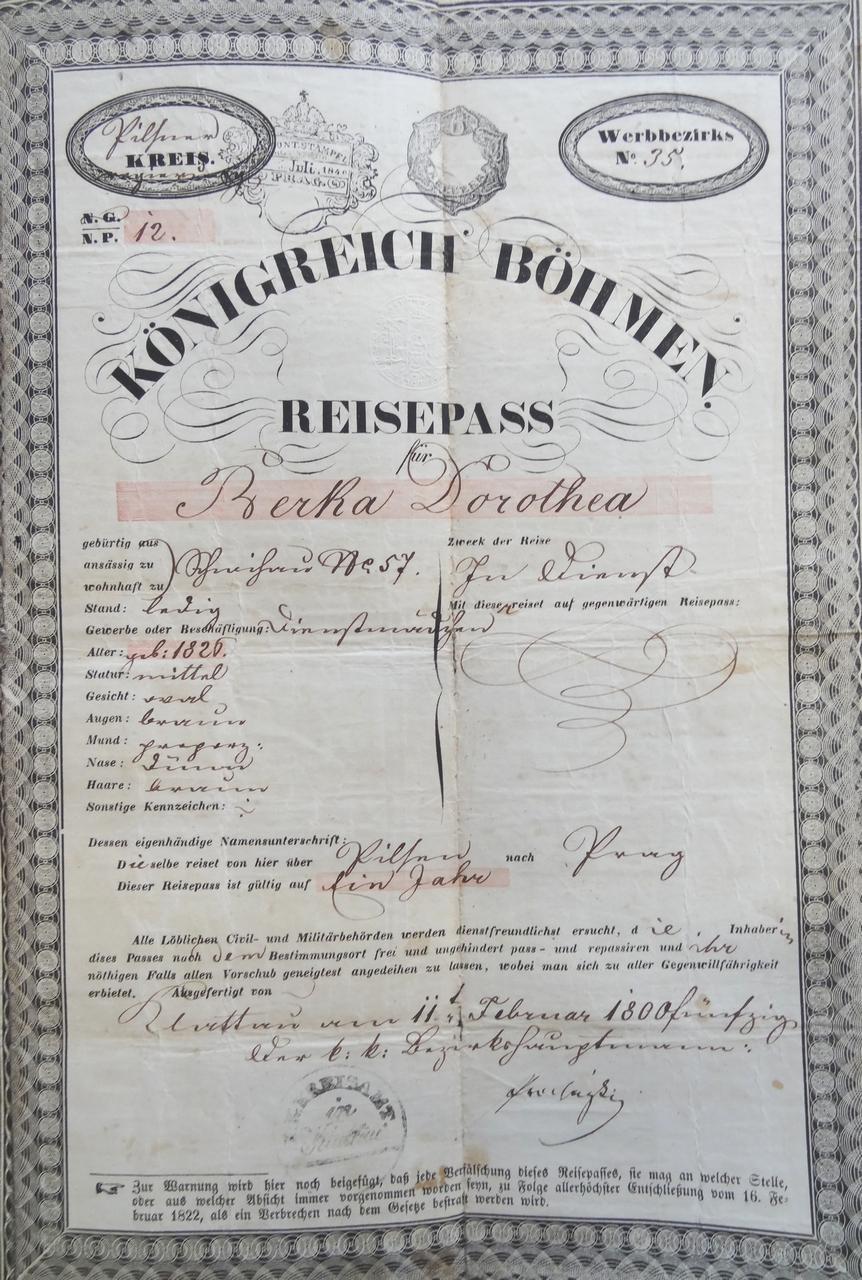 Pilsner
KREIS.
Werbbezirks
N° 35.
Juli. 184
PRAG.
N. G.
N. P. 12.
KÖNIGREICH BÖHMEN.
REISEPASS
für
Berka Dorothea
gebürtig aus
ansässig zu
wohnhaft zu
Schwihau No 57.
Stand: ledig
Gewerbe oder Beschäftigung:
Alter: geb: 1826.
Statur: mittel
Gesicht: oval
Augen: braun
Mund: proporz:
Nase: dünn
Haare: braun
Sonstige Kennzeichen:
Zweck der Reise
In Dienst
Mit diesen reiset auf gegenwärtigen Reisepass:
Dessen eigenhändige Namensunterschrift:
Dieselbe reiset von hier über Pilsen nach Prag
Dieser Reisepass ist gültig auf Ein Jahr
Alle Löblichen Civil- und Militärbehörden werden dienstfreundlichst ersucht, d ie Inhaberin
dises Passes nach dem Bestimmungsort frei und ungehindert pass- und repassiren und ihr
nöthigen Falls allen Vorschub geneigtest angedeihen zu lassen, wobei man sich zu aller Gegenwillfährigkeit
erbietet. Ausgefertigt von
Klattau am 11t Februar 1800fünfzig
Der k: k: Bezirkshauptmann:
Zur Warnung wird hier noch beigefügt, daß jede Verfälschung dieses Reisepasses, sie mag an welcher Stelle,
oder aus welcher Absicht immer vorgenommen worden seyn, zu Folge allerhöchster Entschließung vom 16. Fe-
bruar 1822, als ein Verbrechen nach dem Gesetze bestraft werden wird.